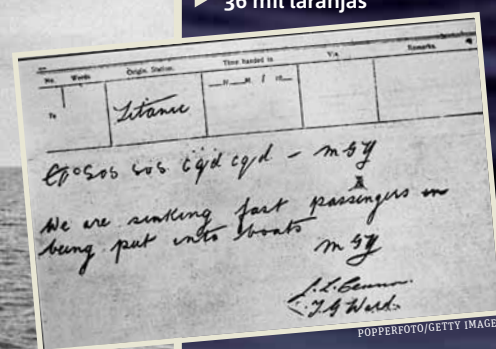 ▶ 36 mil laranjas
No. Words Origin. Station. Time handed in Via Remarks.
To Titanic H. M. / 19
sos sos cqd cqd - MGY
We are sinking fast passengers
being put into boats
MGY
POPPERFOTO/GETTY IMAGE